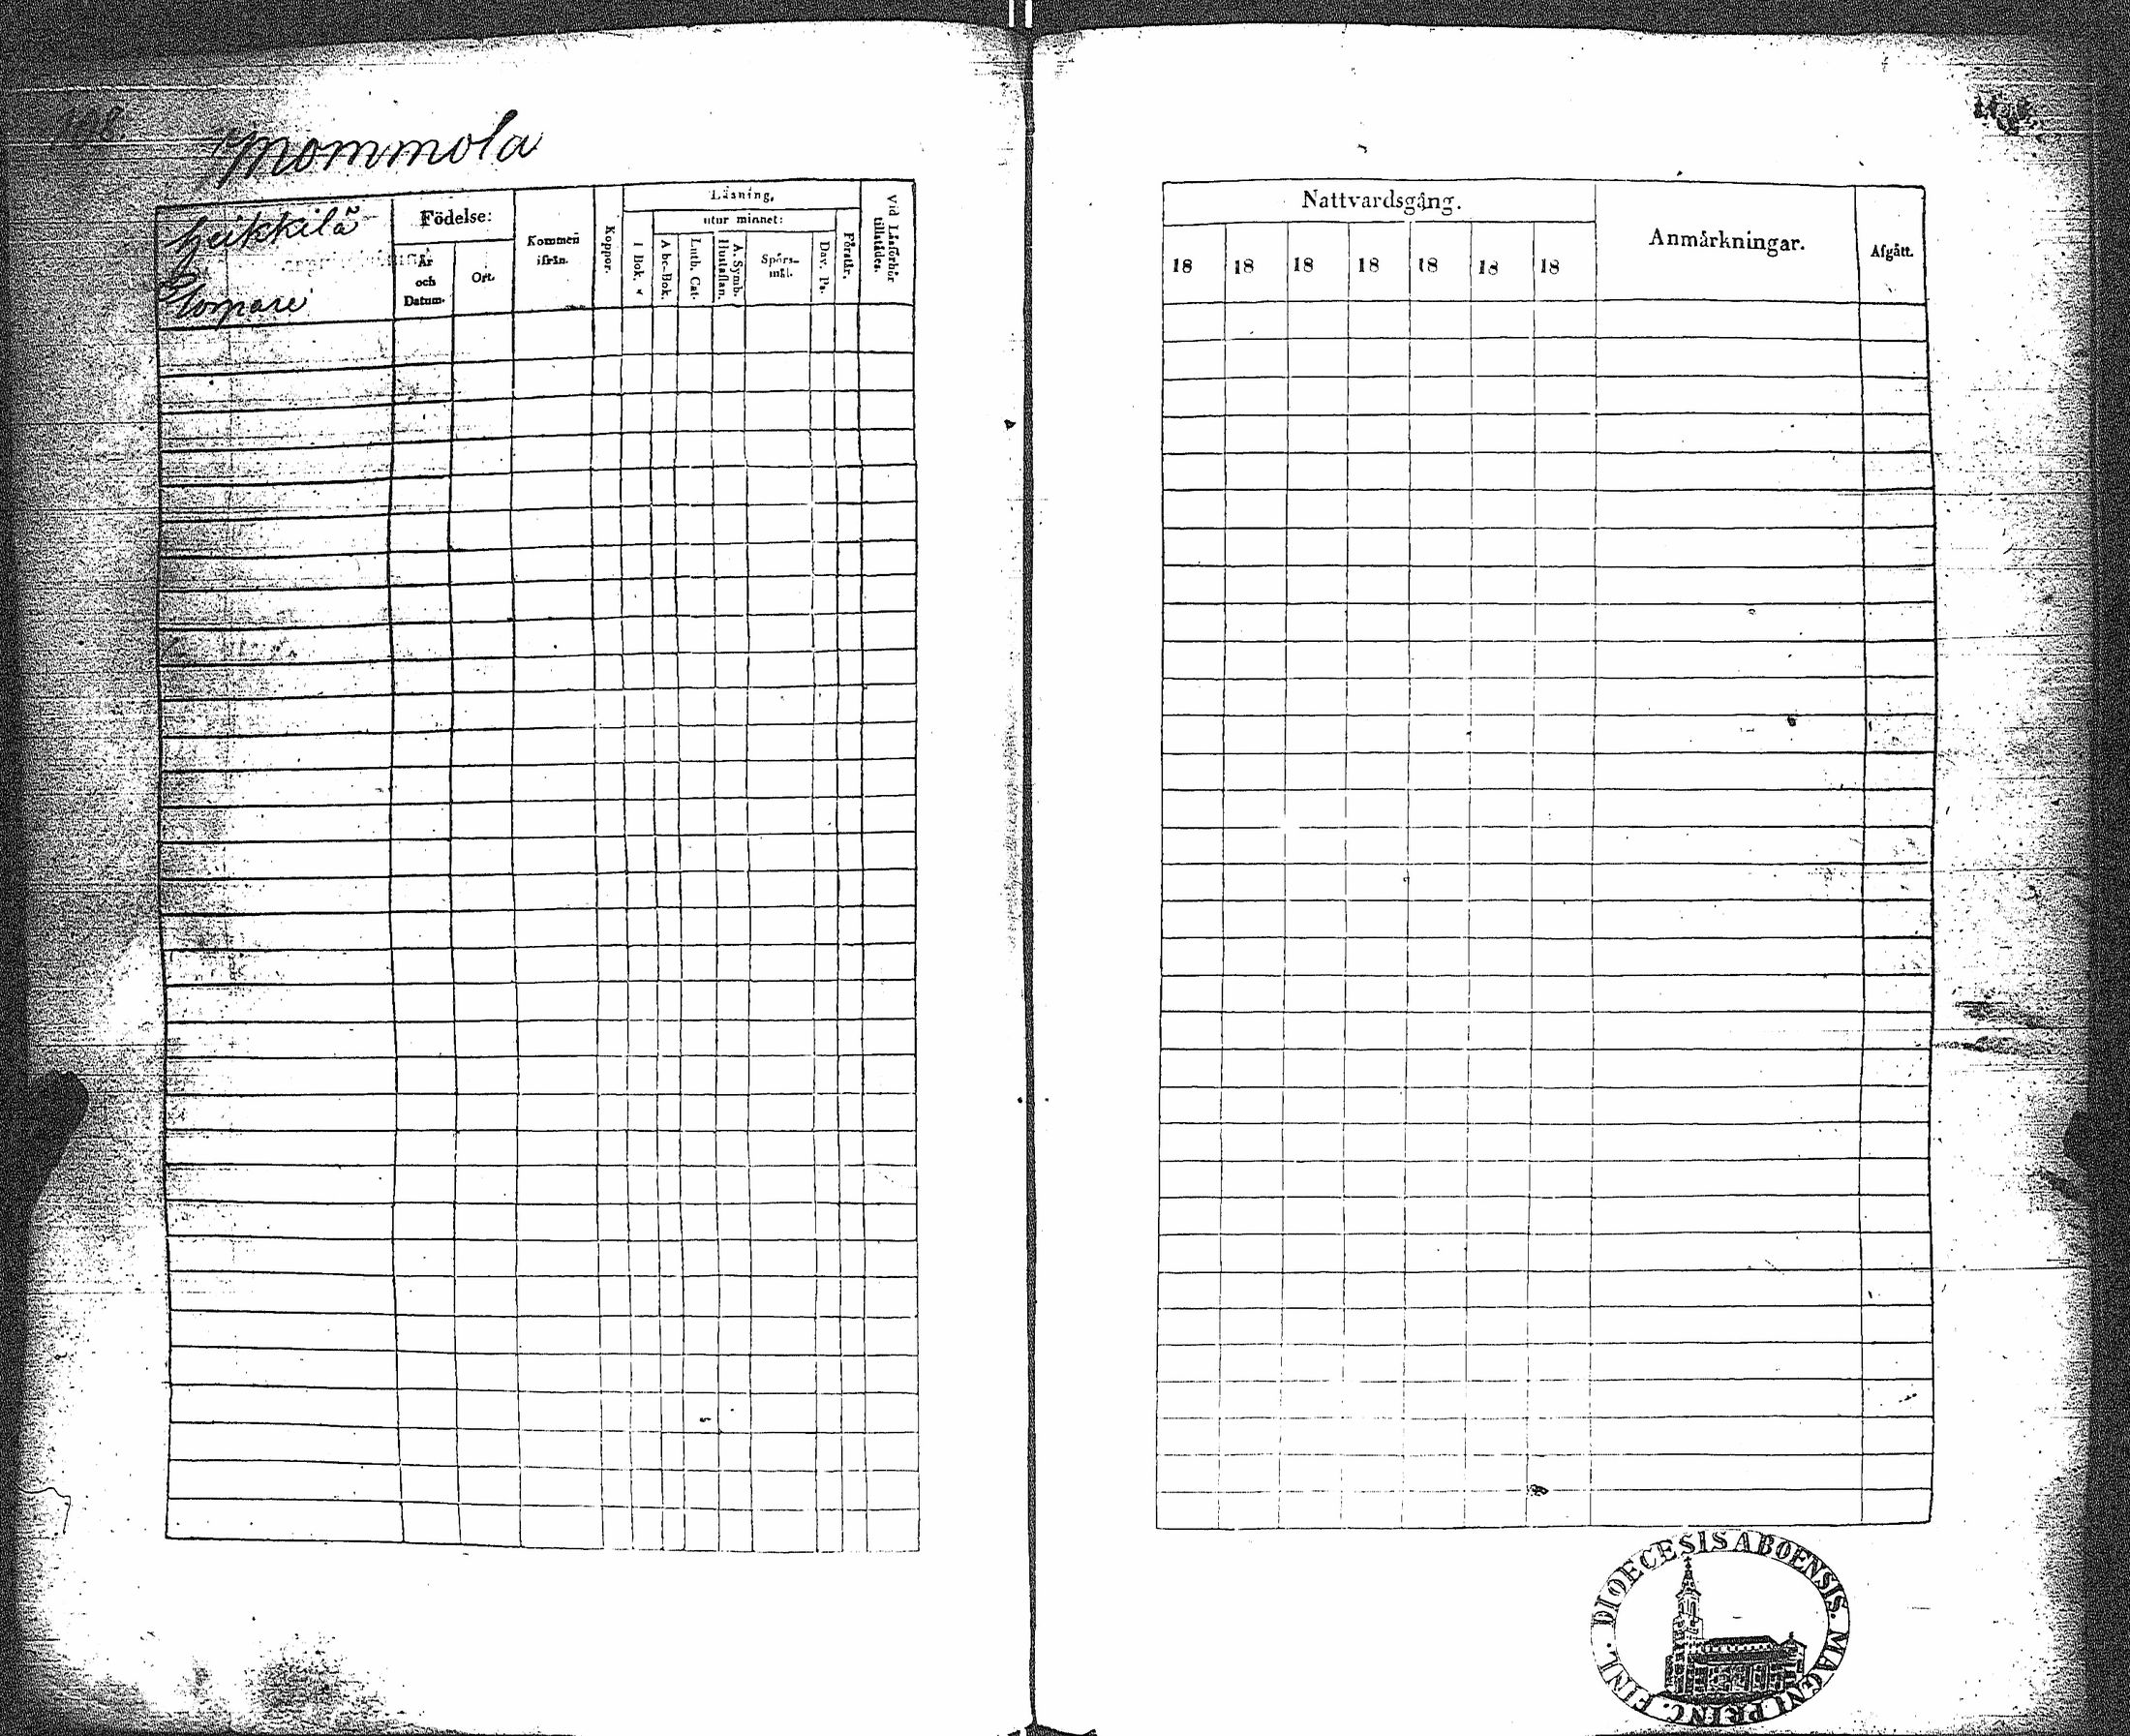 Mommola
Heikkilä
Födelse:
År
och
Datum.
Ort.
Kommen
ifrån.
Koppor.
Läsning.
utur minnet:
I Bok.
Abc-Bok.
Luth. Cat.
A. Symb.
Hustaflan.
Spörs-
mål.
Dav. Ps.
Förstår.
Vid Läsförhör
tillstädes.
Nattvardsgång.
18 18 18 18 18 18 18
Anmärkningar.
Afgått.
DIOECESIS ABOENSIS. MAGNI PRINC. FINL.